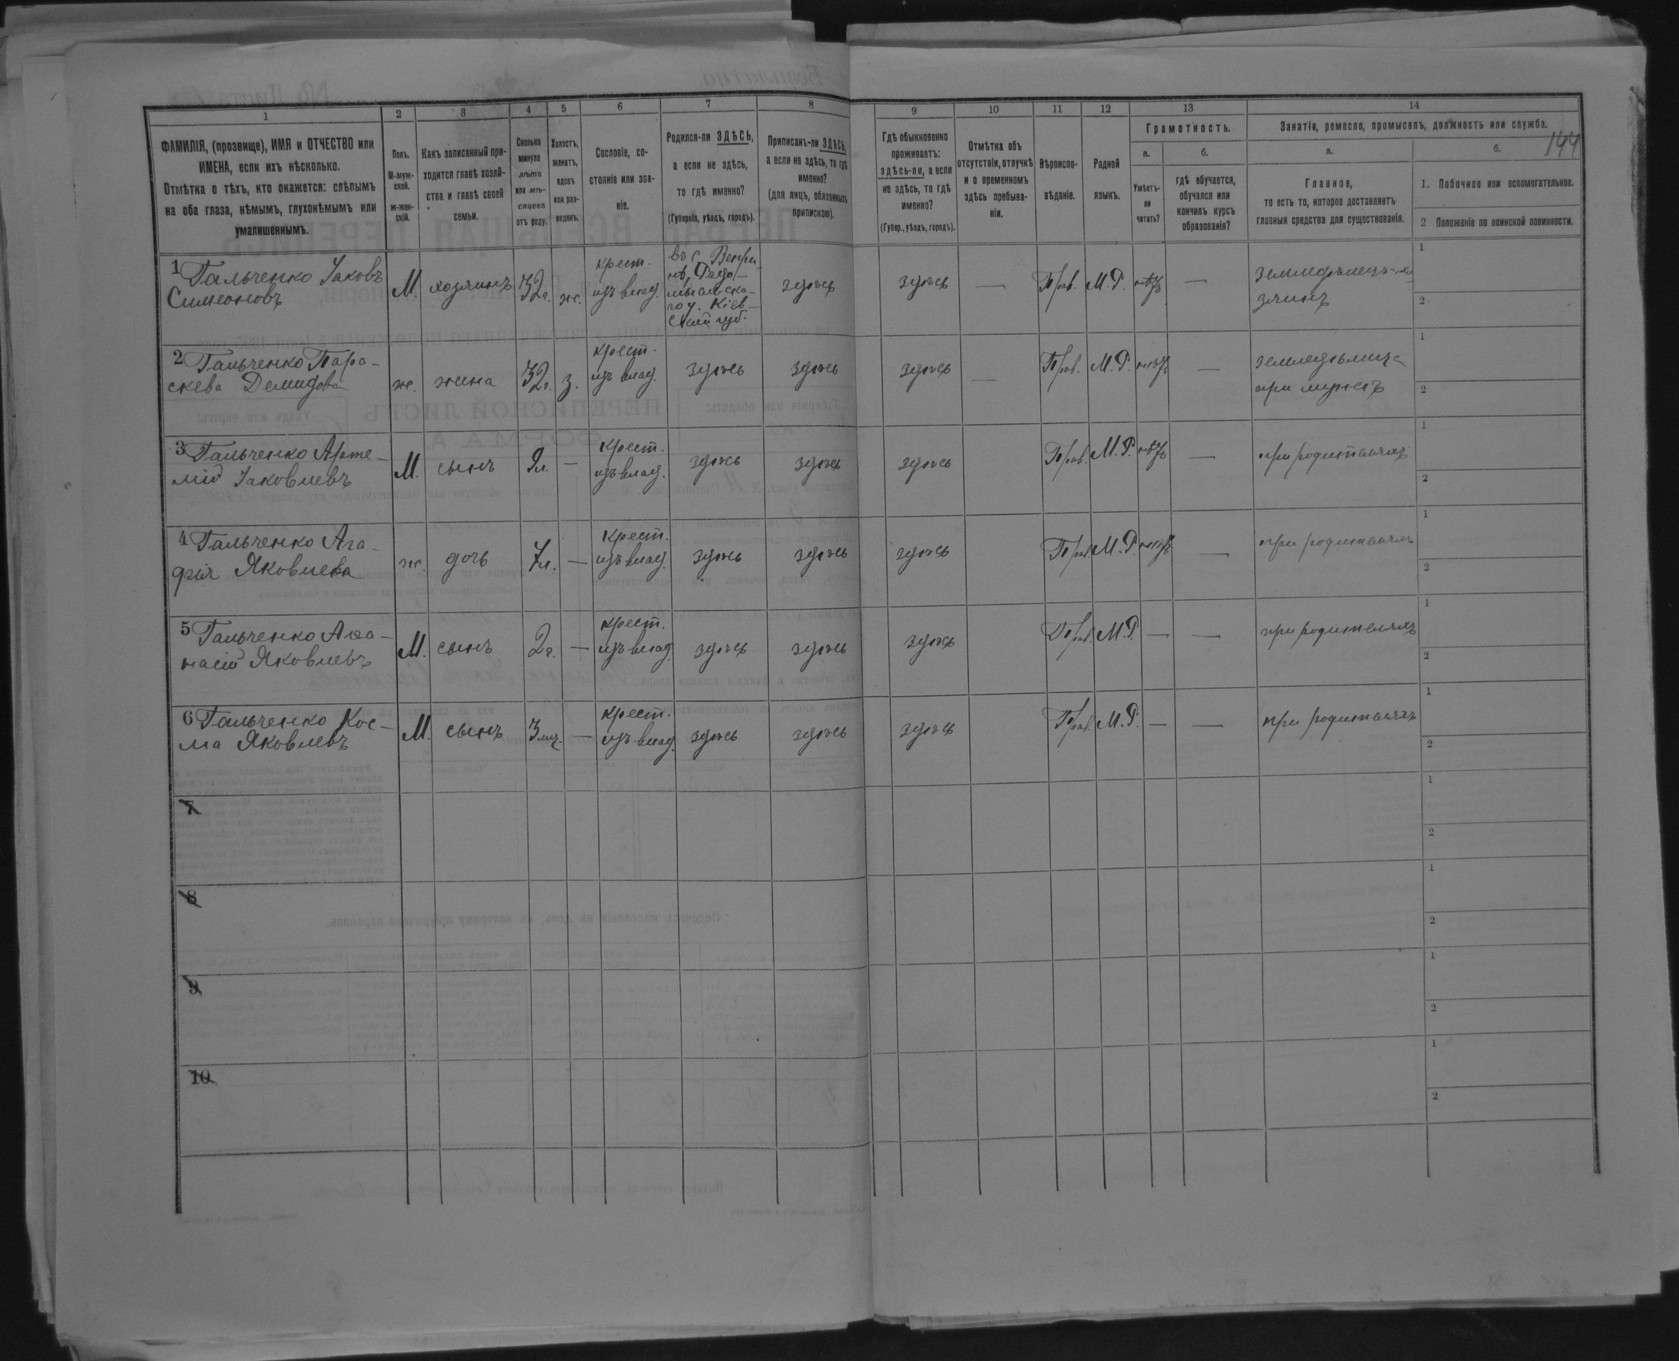 144
1 2 3 4 5 6 7 8 9 10 11 12 13 14
ФАМИЛІЯ, (прозвище), ИМЯ и ОТЧЕСТВО или
ИМЕНА, если ихъ нѣсколько.
Отмѣтка о тѣхъ, кто окажется: слѣпымъ
на оба глаза, нѣмымъ, глухонѣмымъ или
умалишеннымъ.
Полъ.
М-муж-
ской.
ж-жен-
скій.
Какъ записанный при-
ходится главѣ хозяй-
ства и главѣ своей
семьи.
Сколько
минуло
лѣтъ
или мѣ-
сяцевъ
отъ роду.
Холостъ,
женатъ,
вдовъ
или раз-
веденъ.
Сословіе, со-
стояніе или зва-
ніе.
Родился-ли ЗДѢСЬ,
а если не здѣсь,
то гдѣ именно?
(Губернія, уѣздъ, городъ).
Приписанъ-ли ЗДѢСЬ,
а если не здѣсь, то гдѣ
именно?
(для лицъ, обязанныхъ
припискою).
Гдѣ обыкновенно
проживаетъ:
здѣсь-ли, а если
не здѣсь, то гдѣ
именно?
(Губер., уѣздъ, городъ).
Отмѣтка объ
отсутствіи, отлучкѣ
и о временномъ
здѣсь пребыва-
ніи.
Вѣроиспо-
вѣданіе.
Родной
языкъ.
Грамотность.
а.
Умѣетъ-
ли
читать?
б.
гдѣ обучается,
обучался или
кончилъ курсъ
образованія?
Занятія, ремесло, промыселъ, должность или служба.
а.
Главное,
то есть то, которое доставляетъ
главныя средства для существованія.
б.
1. Побочное или вспомогательное.
2 Положеніе по воинской повинности.
1 Гальченко Іаковъ
Симеоновъ
М хозяинъ 32г. ж.
крест.
изъ влад.
въ с.
Кіев-
ской губ.
здѣсь здѣсь — Прав. М.Р. нѣтъ —
земледѣлецъ-хо
зяинъ
1
2
2 Гальченко Пара-
скева Демидова
ж. жена 32г. з.
крест.
изъ влад.
здѣсь здѣсь здѣсь — Прав. М.Р. нѣтъ —
земледѣлица
при мужѣ
1
2
3 Гальченко Арте-
мій Іаковлевъ
М. сынъ 9л. —
крест.
изъ влад.
здѣсь здѣсь здѣсь Прав. М.Р. нѣтъ — при родителяхъ
1
2
4 Гальченко Ага-
фія Яковлева
ж дочь 7л. —
крест.
изъ влад.
здѣсь здѣсь здѣсь Прав. М.Р. нѣтъ — при родителяхъ
1
2
5 Гальченко Аѳа-
насій Яковлевъ
М. сынъ 2г. —
крест.
изъ влад.
здѣсь здѣсь здѣсь Прав. М.Р. — — при родителяхъ
1
2
6 Гальченко Кос-
ма Яковлевъ
М. сынъ 3мц. —
крест.
изъ влад.
здѣсь здѣсь здѣсь Прав. М.Р. — — при родителяхъ
1
2
7
1
2
8
1
2
9
1
2
10
1
2